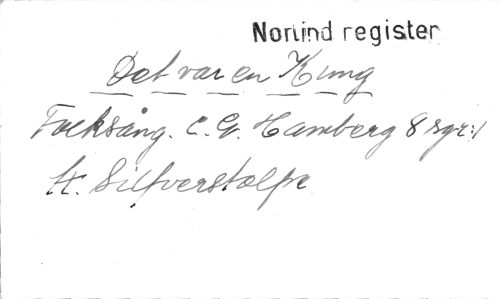 Norlind register
Det var en Kung
Folksång. C. G. Hamberg 8
H. Silfverstolpe